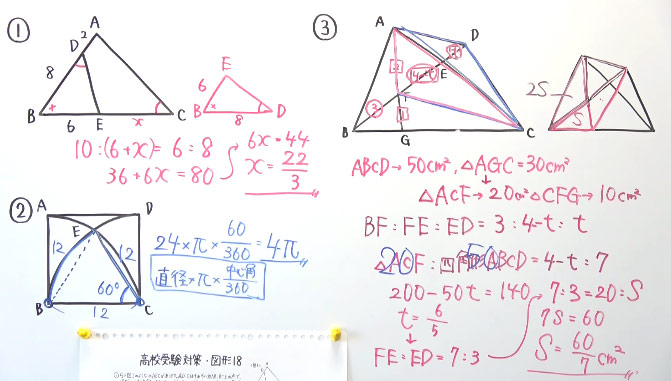 ①
A
D
2
8
B
6
E
x
C
E
6
B
8
D
10:(6+x)=6:8
36+6x=80
6x=44
x=22/3
②
A
D
E
12
12
60°
B
12
C
24×π×60/360=4π
直径×π×中心角/360
③
A
D
E
B
G
C
2S
S
ABCD→50cm², △AGC=30cm²
△ACF→20cm² △CFG→10cm²
BF:FE:ED=3:4-t:t
ABCD=4-t:7
200-50t=140
t=6/5
FE:ED=7:3
7:3=20:S
7S=60
S=60/7cm²
高校受験対策・図形18